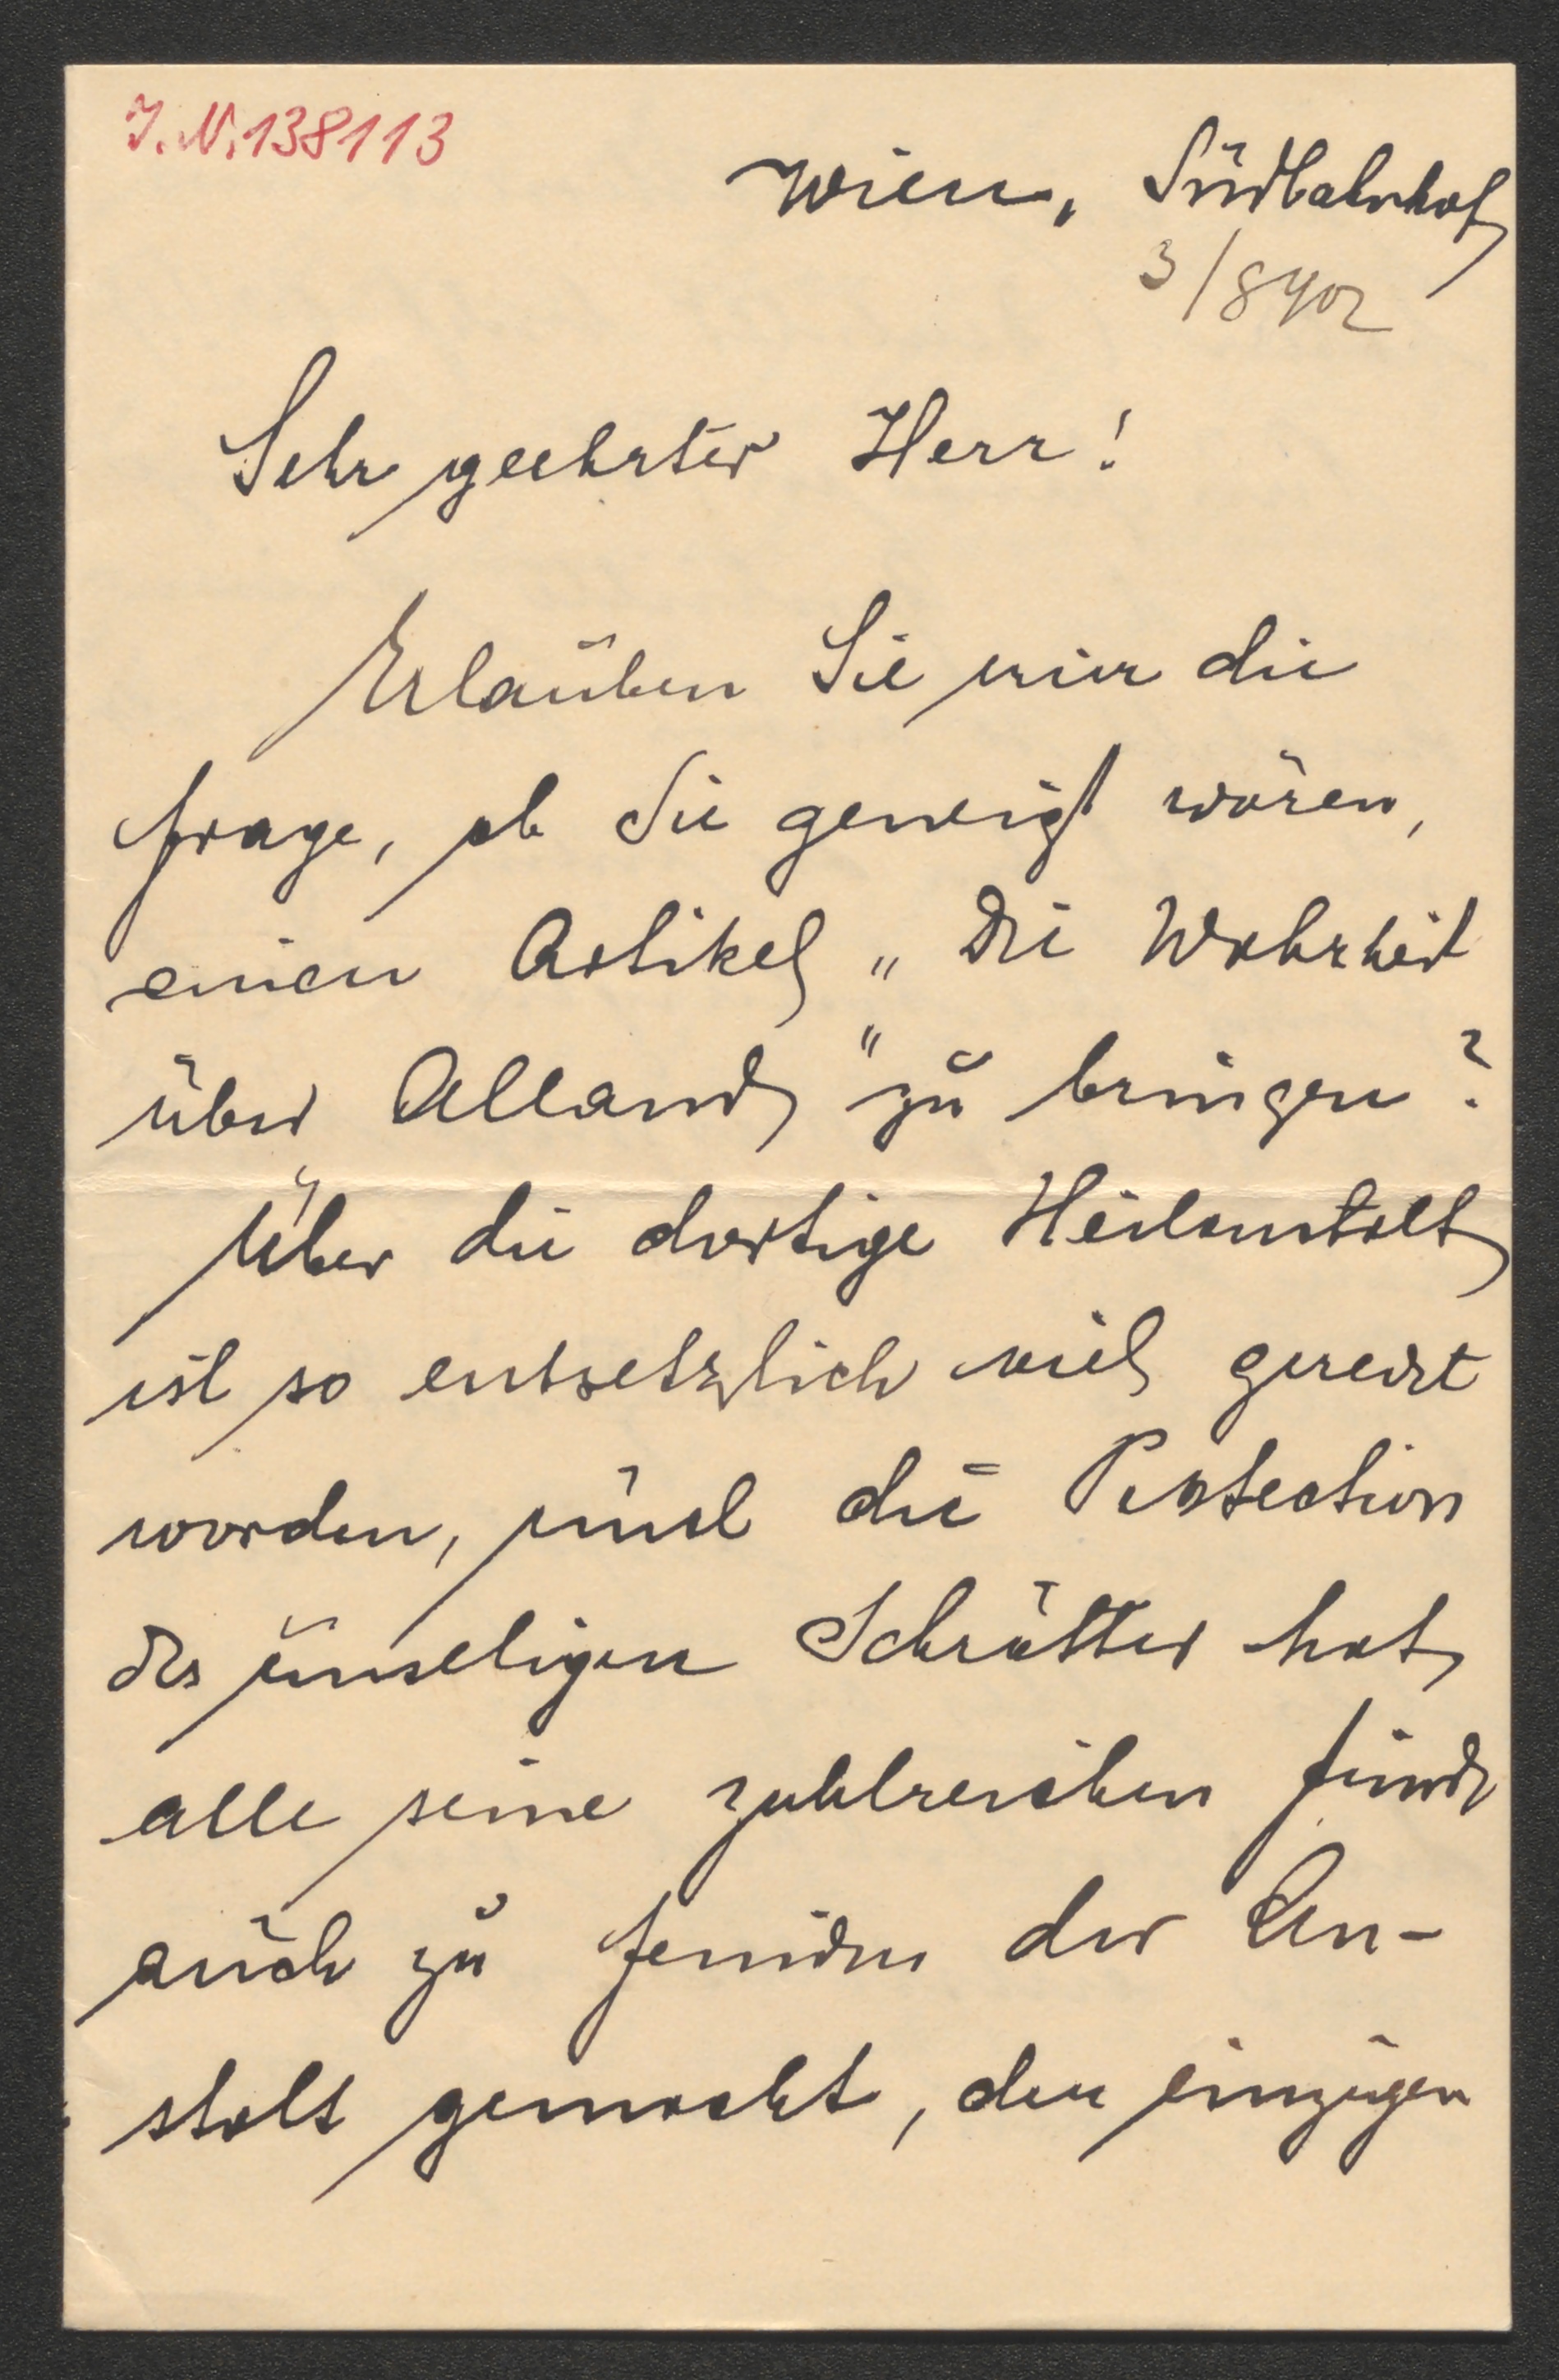 J.N. 138113
Wien, Südbahnhof
3/8 902
Sehr geehrter Herr!
Erlauben Sie mir die
Frage, ob Sie geneigt wären,
einen Artikel „Die Wahrheit
über Alland" zu bringen?
Über die dortige Heilanstalt
ist so entsetzlich viel geredet
worden, und die Protection
des unseligen Schrötter hat
alle seine zahlreichen Feinde
auch zu Feinden der An-
stalt gemacht, den einzigen